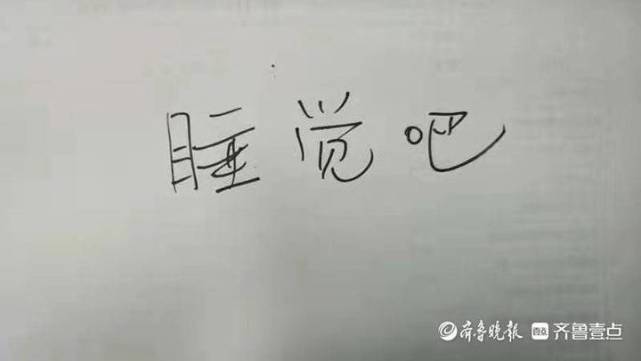 睡觉吧
齐鲁晚报 壹点 齐鲁壹点